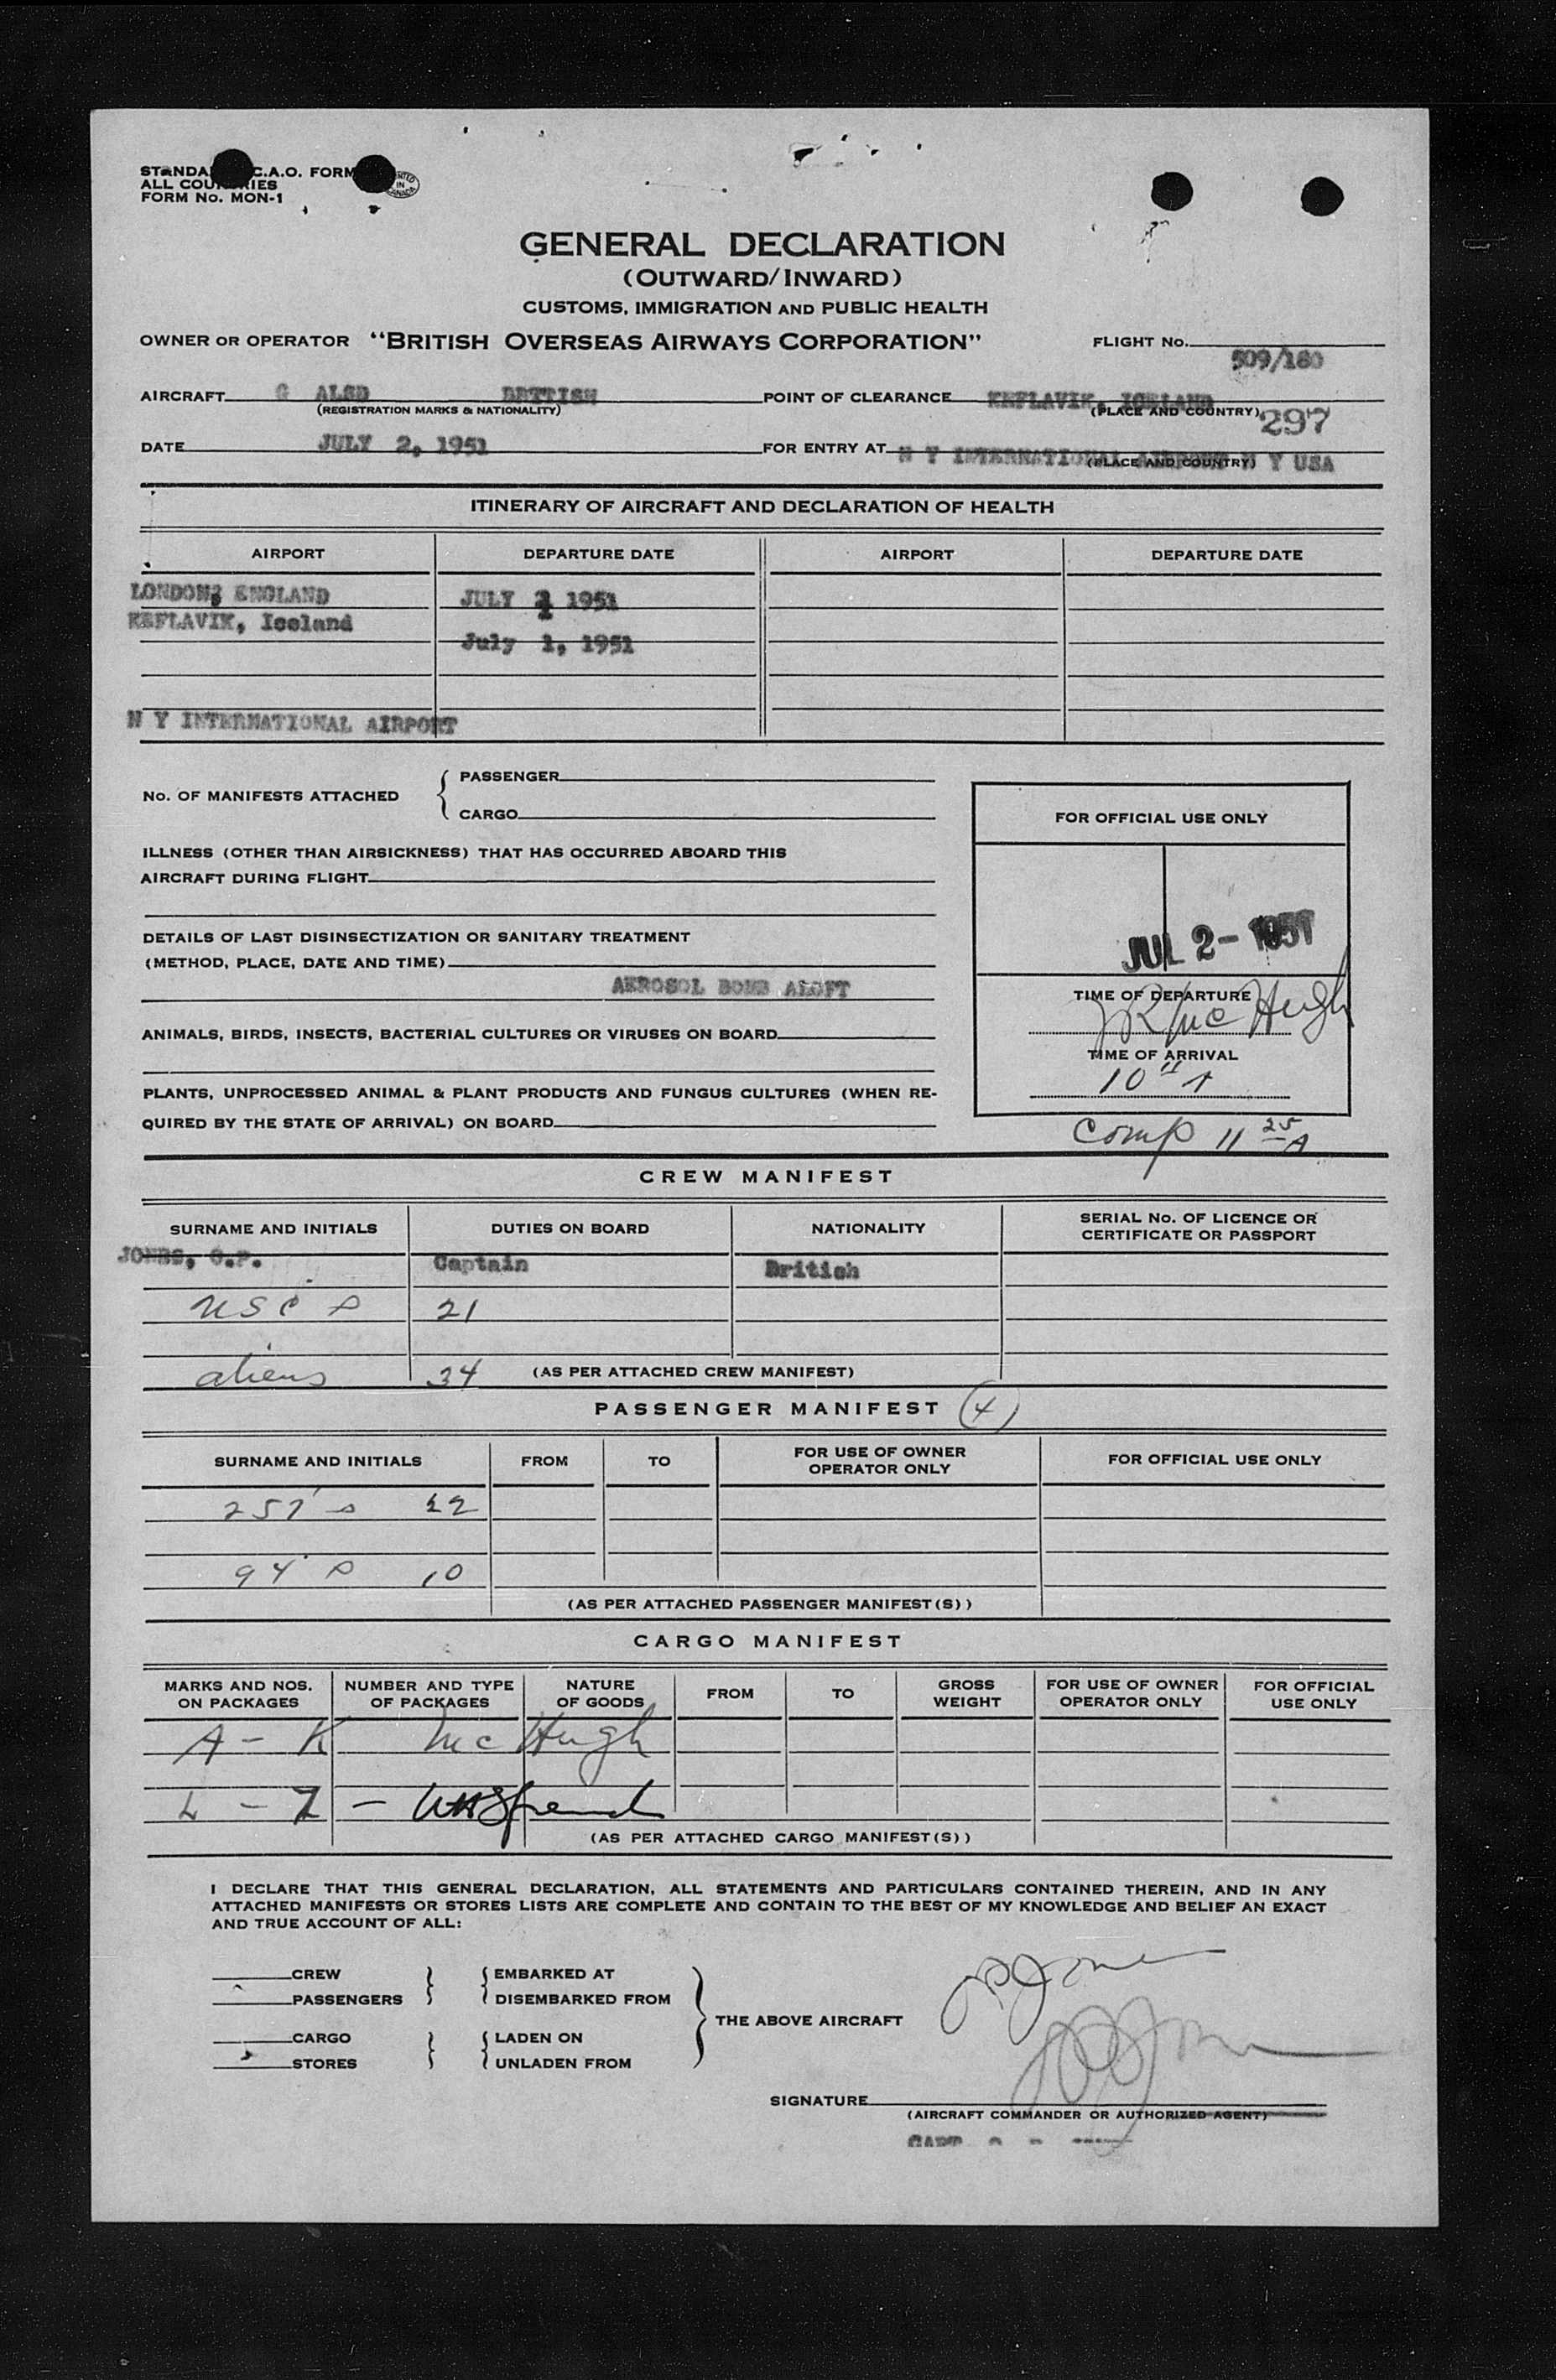 C.A.O. FORM
FORM No. MON-1
PRINTED IN CANADA
GENERAL DECLARATION
(OUTWARD/INWARD)
CUSTOMS, IMMIGRATION AND PUBLIC HEALTH
OWNER OR OPERATOR "BRITISH OVERSEAS AIRWAYS CORPORATION" FLIGHT No. 509/180
AIRCRAFT G ALSD BRTTISH POINT OF CLEARANCE KEFLAVIK, ICELAND
(REGISTRATION MARKS & NATIONALITY) (PLACE AND COUNTRY) 297
DATE JULY 2, 1951 FOR ENTRY AT N Y INTERNATIONAL AIRPORT N Y USA
(PLACE AND COUNTRY)
ITINERARY OF AIRCRAFT AND DECLARATION OF HEALTH
AIRPORT DEPARTURE DATE AIRPORT DEPARTURE DATE
LONDON, ENGLAND JULY 1 1951
KEFLAVIK, Iceland
July 1, 1951
N Y INTERNATIONAL AIRPORT
No. OF MANIFESTS ATTACHED { PASSENGER
CARGO
FOR OFFICIAL USE ONLY
ILLNESS (OTHER THAN AIRSICKNESS) THAT HAS OCCURRED ABOARD THIS
AIRCRAFT DURING FLIGHT
DETAILS OF LAST DISINSECTIZATION OR SANITARY TREATMENT
(METHOD, PLACE, DATE AND TIME)
AEROSOL BOMB ALOFT
JUL 2 - 1951
TIME OF DEPARTURE
JR McHugh
ANIMALS, BIRDS, INSECTS, BACTERIAL CULTURES OR VIRUSES ON BOARD
TIME OF ARRIVAL
PLANTS, UNPROCESSED ANIMAL & PLANT PRODUCTS AND FUNGUS CULTURES (WHEN RE-
QUIRED BY THE STATE OF ARRIVAL) ON BOARD
Comp 11 25 A
CREW MANIFEST
SURNAME AND INITIALS DUTIES ON BOARD NATIONALITY SERIAL No. OF LICENCE OR
CERTIFICATE OR PASSPORT
JONES, O.P. Captain British
USC s 21
aliens 34 (AS PER ATTACHED CREW MANIFEST)
PASSENGER MANIFEST (4)
SURNAME AND INITIALS FROM TO FOR USE OF OWNER
OPERATOR ONLY FOR OFFICIAL USE ONLY
257's 22
94's 10
(AS PER ATTACHED PASSENGER MANIFEST(S))
CARGO MANIFEST
MARKS AND NOS. NUMBER AND TYPE NATURE FROM TO GROSS FOR USE OF OWNER FOR OFFICIAL
ON PACKAGES OF PACKAGES OF GOODS WEIGHT OPERATOR ONLY USE ONLY
A - K McHugh
L - Z -
(AS PER ATTACHED CARGO MANIFEST(S))
I DECLARE THAT THIS GENERAL DECLARATION, ALL STATEMENTS AND PARTICULARS CONTAINED THEREIN, AND IN ANY
ATTACHED MANIFESTS OR STORES LISTS ARE COMPLETE AND CONTAIN TO THE BEST OF MY KNOWLEDGE AND BELIEF AN EXACT
AND TRUE ACCOUNT OF ALL:
CREW EMBARKED AT
PASSENGERS DISEMBARKED FROM
THE ABOVE AIRCRAFT
CARGO LADEN ON
STORES UNLADEN FROM
OPJones
OPJones
SIGNATURE
(AIRCRAFT COMMANDER OR AUTHORIZED AGENT)
CAPT